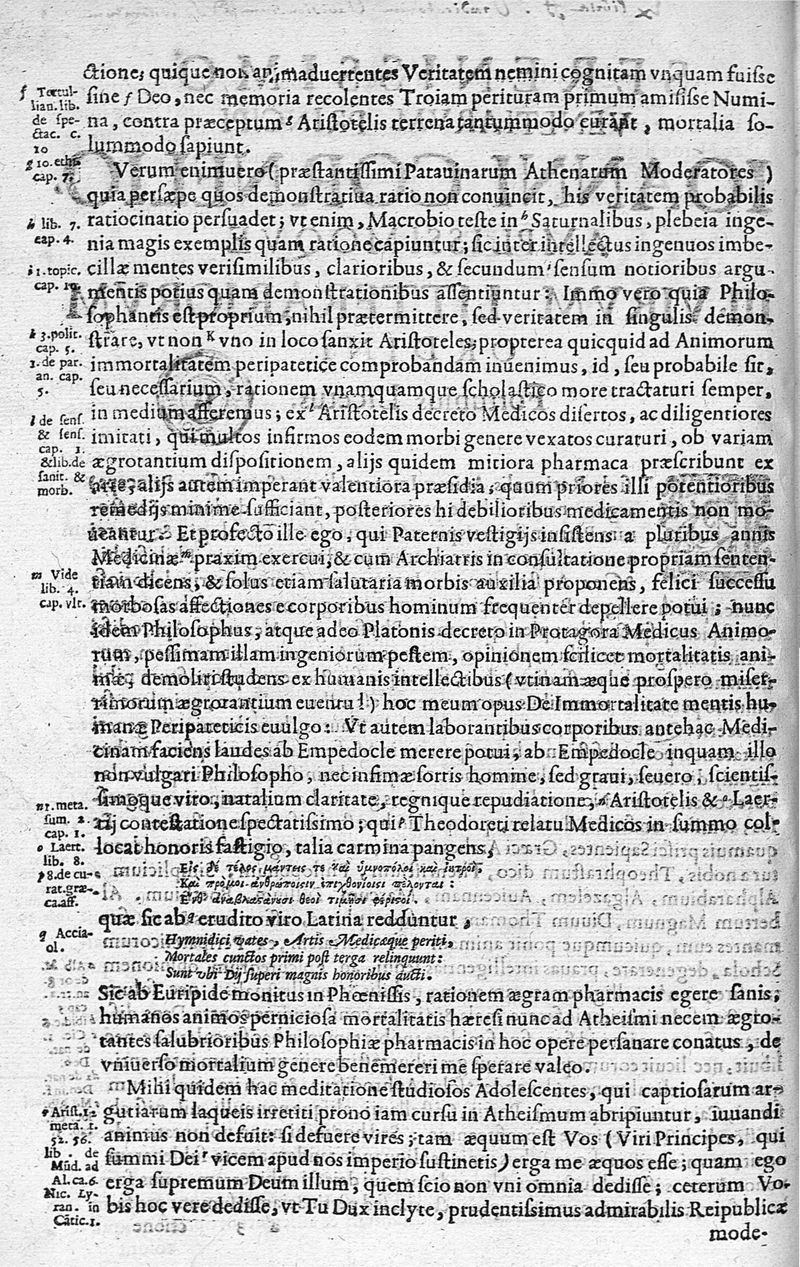 ctione; quique non animaduertentes Veritatem nemini cognitam vnquam fuisse
f Tertul-
lian. lib.
de spe-
ctac. c.
10
sine f Deo, nec memoria recolentes Troiam perituram primum amisisse Numi-
na, contra præceptum g Aristotelis terrena tantummodo curant, mortalia so-
lummodo sapiunt.
g 10. ethic.
cap. 7.
Verum enimuero (præstantissimi Patauinarum Athenarum Moderatores)
quia persæpe quos demonstratiua ratio non conuincit, his veritatem probabilis
h lib. 7.
cap. 4.
ratiocinatio persuadet; vt enim, Macrobio teste in h Saturnalibus, plebeia inge-
nia magis exemplis quam ratione capiuntur; sic inter intellectus ingenuos imbe-
i 1. topic.
cap. 10.
cillæ mentes verisimilibus, clarioribus, & secundum i sensum notioribus argu-
mentis potius quam demonstrationibus assentiuntur: Immo vero quia Philo-
sophantis est proprium, nihil prætermittere, sed veritatem in singulis demon-
k 3. polit.
cap. 5.
1. de par.
an. cap.
5.
strare, vt non k vno in loco sanxit Aristoteles; propterea quicquid ad Animorum
immortalitatem peripatetice comprobandam inuenimus, id, seu probabile sit,
seu necessarium, rationem vnamquamque scholastico more tractaturi semper,
l de sens.
& sens.
cap. 1.
& lib. de
sanit. &
morb.
in medium afferemus; ex l Aristotelis decreto Medicos disertos, ac diligentiores
imitati, qui multos infirmos eodem morbi genere vexatos curaturi, ob variam
ægrotantium dispositionem, alijs quidem mitiora pharmaca præscribunt ex
arte, alijs autem imperant valentiora præsidia, quum priores illi potentioribus
remedijs minime sufficiant, posteriores hi debilioribus medicamentis non mo-
ueantur. Et profecto ille ego, qui Paternis vestigijs insistens a pluribus annis
m Vide
lib. 4.
cap. vlt.
Medicinæ m praxim exercui, & cum Archiatris in consultatione propriam senten-
tiam dicens, & solus etiam salutaria morbis auxilia proponens, felici successu
morbosas affectiones e corporibus hominum frequenter depellere potui; nunc
idem Philosophus, atque adeo Platonis decreto in Protagora Medicus Animo-
rum, pessimam illam ingeniorum pestem, opinionem scilicet mortalitatis ani-
mæ, demoliri studens ex humanis intellectibus (vtinam æque prospero miser-
rimorum ægrotantium euentu!) hoc meum opus De Immortalitate mentis hu-
manæ Peripateticis euulgo: Vt autem laborantibus corporibus antehac Medi-
cinam faciens laudes ab Empedocle merere potui, ab Empedocle inquam illo
non vulgari Philosopho, nec infimæ sortis homine, sed graui, seuero, scientis-
n 1. meta.
sum. 2.
cap. 1.
o Laert.
lib. 8.
p 8. de cu-
rat. græ-
ca. aff.
simoque viro, natalium claritate, regnique repudiatione, n Aristotelis & o Laer-
tij contestatione spectatissimo; qui p Theodoreti relatu Medicos in summo col-
locat honoris fastigio, talia carmina pangens,
Εἰς δὲ τέλος μάντεις τε καὶ ὑμνοπόλοι καὶ ἰητροί,
Καὶ πρόμοι ἀνθρώποισιν ἐπιχθονίοισι πέλονται:
Ἔνθεν ἀναβλαστάνουσι θεοὶ τιμῇσι φέριστοι.
q Accia-
ol.
quæ sic ab q erudito viro Latina redduntur,
Hymnidici vates, Artis Medicæque periti,
Mortales cunctos primi post terga relinquunt:
Sunt vbi Dij superi magnis honoribus aucti.
Sic ab Euripide monitus in Phœnissis, rationem ægram pharmacis egere sanis;
humanos animos perniciosa mortalitatis hæresi nunc ad Atheismi necem ægro-
tantes salubrioribus Philosophiæ pharmacis in hoc opere persanare conatus, de
vniuerso mortalium genere benemereri me sperare valeo.
Mihi quidem hac meditatione studiosos Adolescentes, qui captiosarum ar-
r Arist. 12
meta. t.
52. 56.
lib. de
Mūd. ad
Al. ca. 6.
Nic. Ly-
ran. in
Cātic. 1.
gutiarum laqueis irretiti prono iam cursu in Atheismum abripiuntur, iuuandi
animus non defuit: si defuere vires; tam æquum est Vos (Viri Principes, qui
summi Dei r vicem apud nos imperio sustinetis) erga me æquos esse; quam ego
erga supremum Deum illum, quem scio non vni omnia dedisse; ceterum Vo-
bis hoc vere dedisse, vt Tu Dux inclyte, prudentissimus admirabilis Reipublicæ
mode-